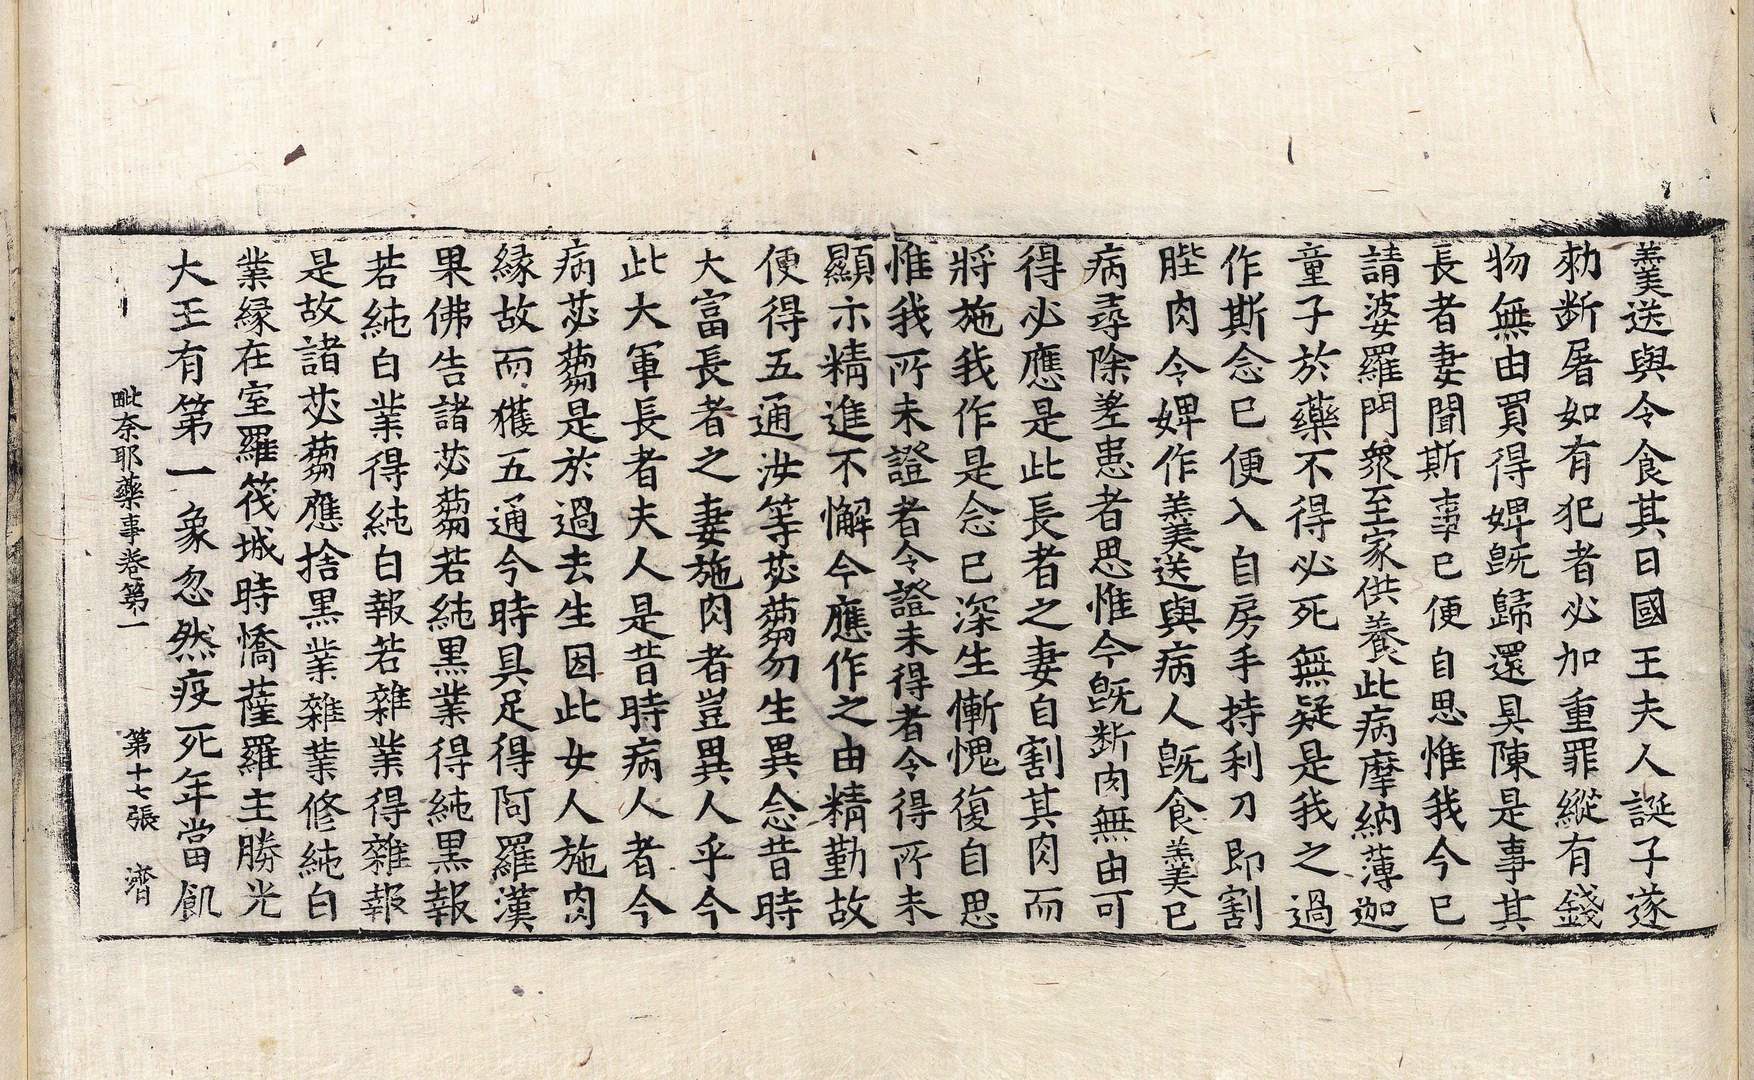 羹送與令食其日國王夫人誕子遂
勑断屠如有犯者必加重罪縱有錢
物無由買得婢旣歸還具陳是事其
長者妻聞斯事已便自思惟我今已
請婆羅門衆至家供養此病摩納薄迦
童子於藥不得必死無疑是我之過
作斯念已便入自房手持利刀即割
䏶肉令婢作羹送與病人旣食羹已
病尋除差患者思惟今旣斷肉無由可
得必應是此長者之妻自割其肉而
將施我作是念已深生慚愧復自思
惟我所未證者令證未得者令得所未
顯示精進不懈今應作之由精勤故
便得五通汝等苾蒭勿生異念昔時
大富長者之妻施肉者豈異人乎今
此大軍長者夫人是昔時病人者今
病苾蒭是於過去生因此女人施肉
縁故而獲五通今時具足得阿羅漢
果佛告諸苾蒭若純黒業得純黒報
若純白業得純白報若雜業得雜報
是故諸苾蒭應捨黒業雜業修純白
業縁在室羅筏城時憍薩羅主勝光
大王有第一象忽然疫死年當飢
毗奈耶藥事卷第一 第十七張 濟